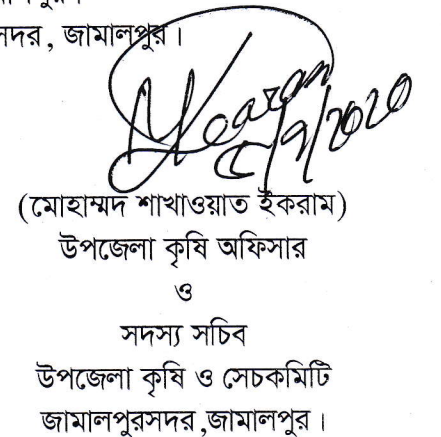 সদর, জামালপুর।
(মোহাম্মদ শাখাওয়াত ইকরাম)
উপজেলা কৃষি অফিসার
ও
সদস্য সচিব
উপজেলা কৃষি ও সেচকমিটি
জামালপুরসদর,জামালপুর।